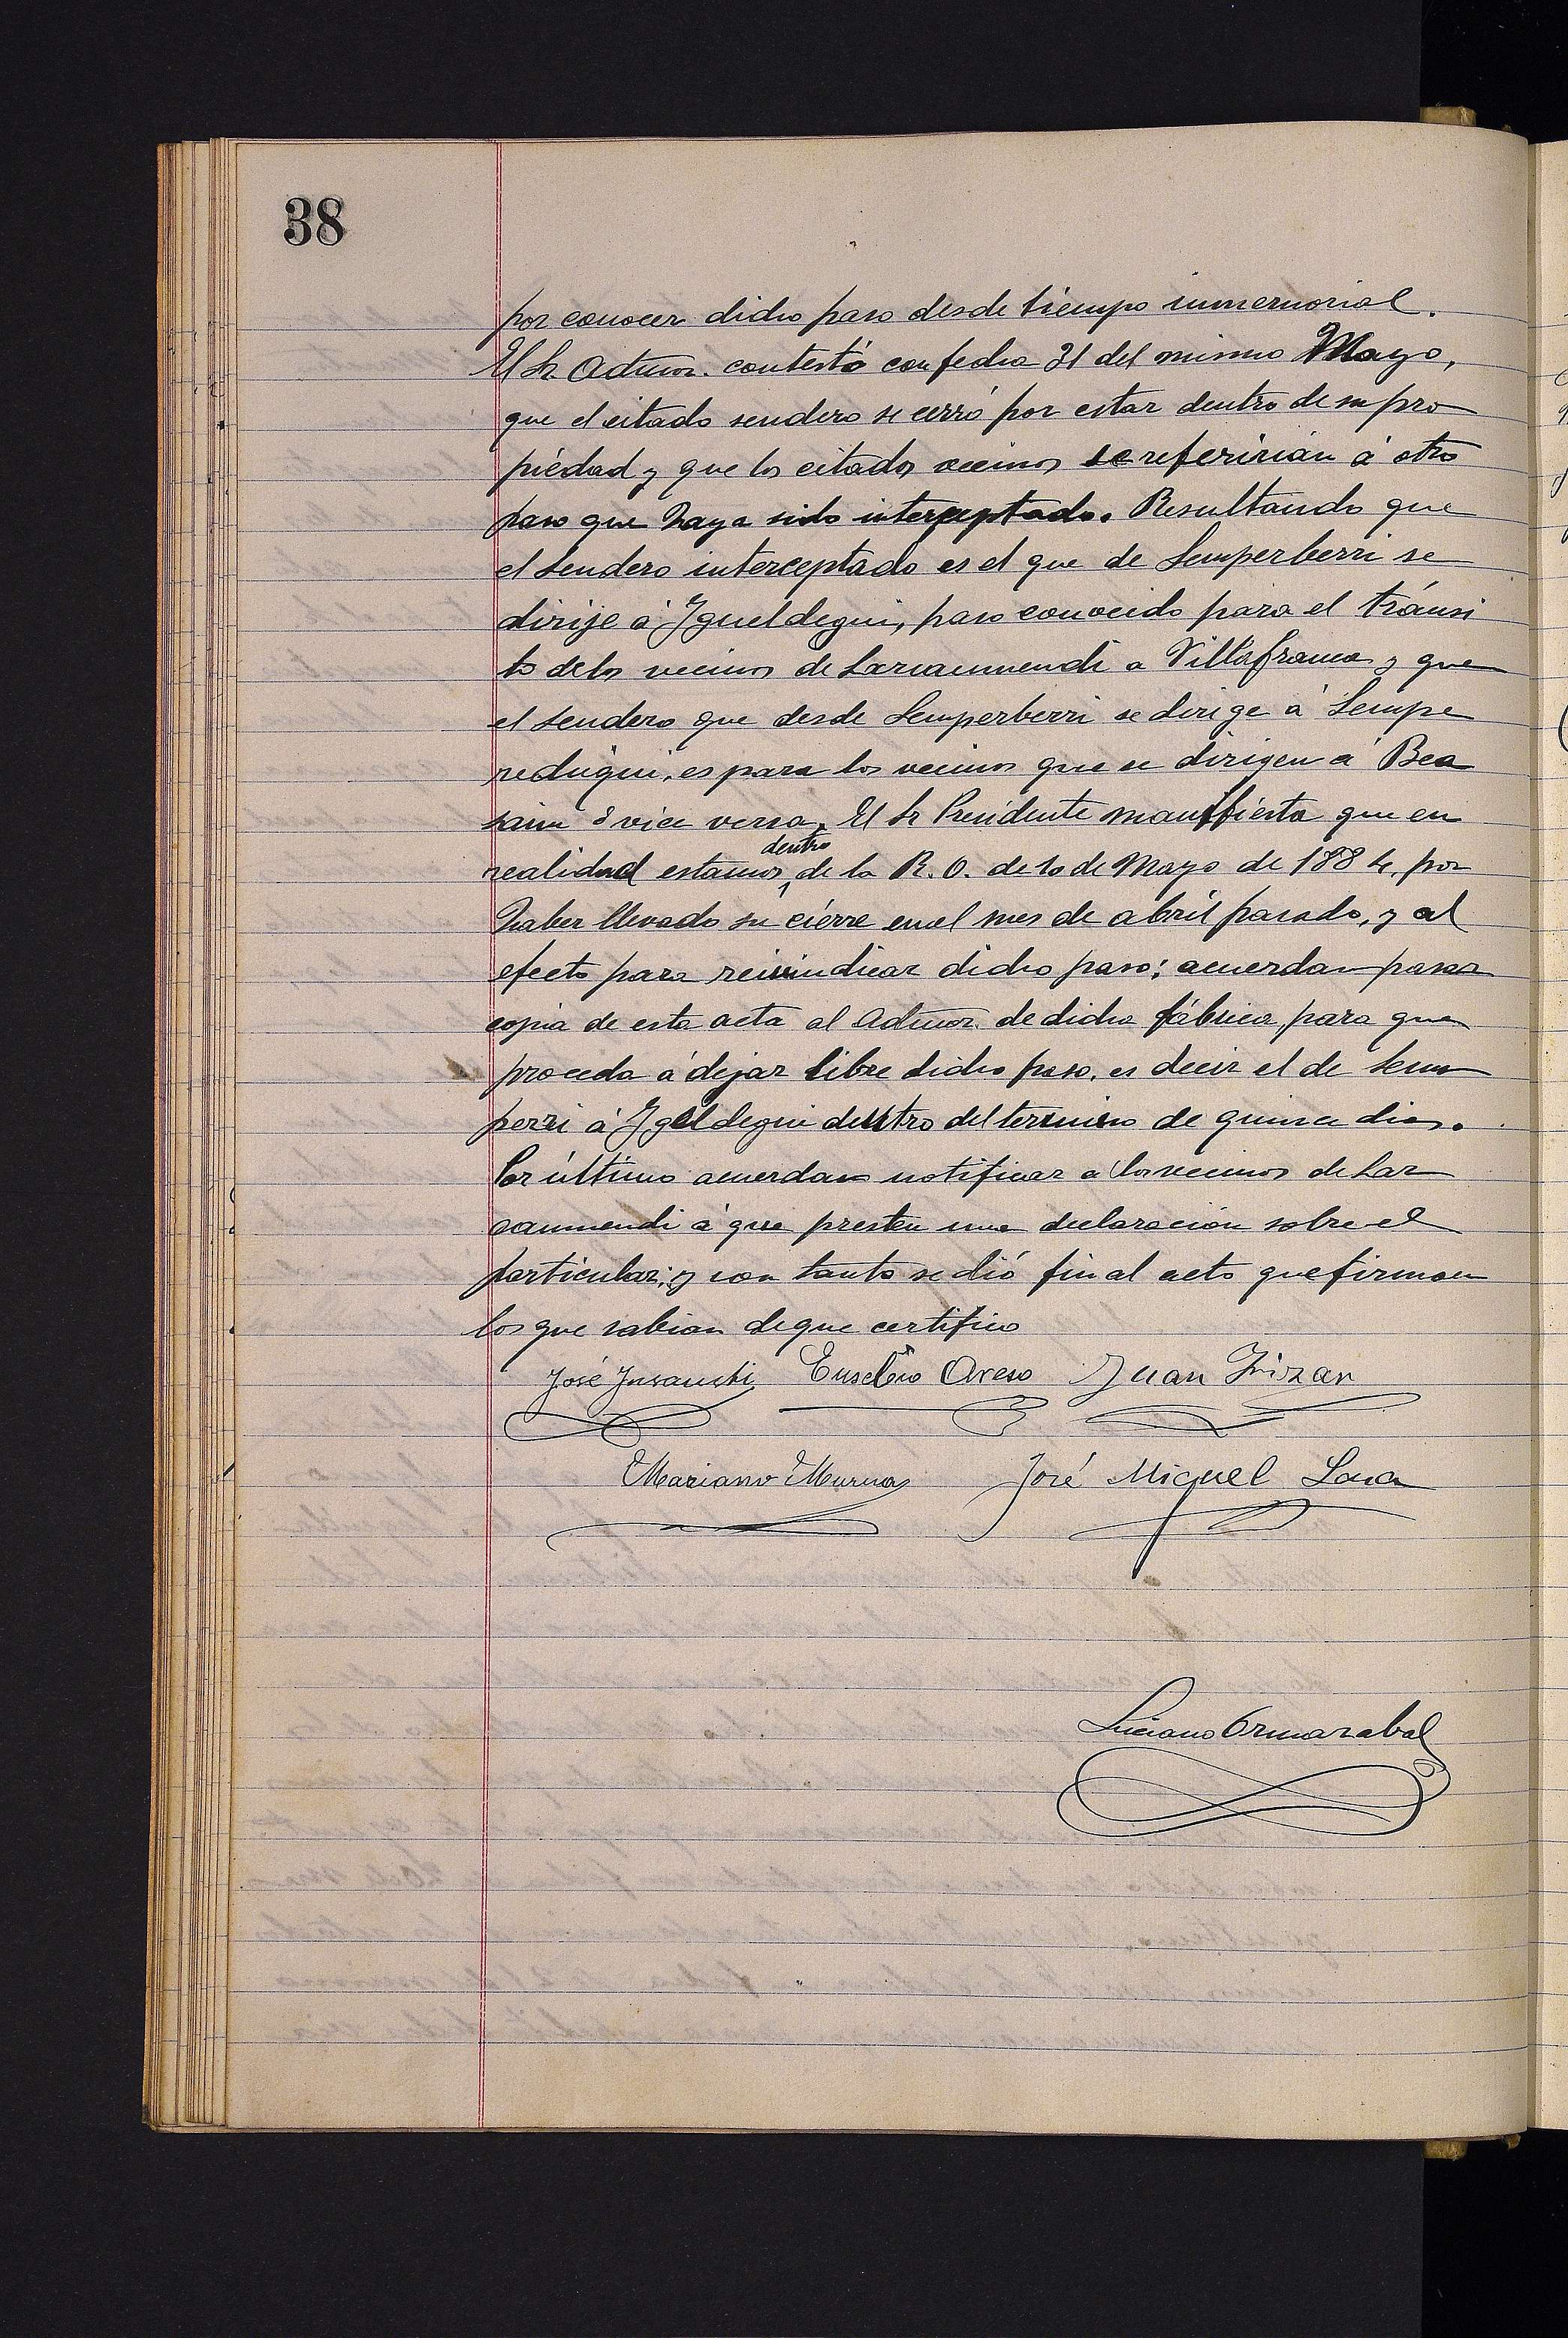 38
por conocer dicho paso desde tiempo inmemorial.
El Sr. Admor. contestó con fecha 31 del mismo Mayo,
que el citado sendero se cerró por estar dentro de su pro
piedad y que los citados vecinos se referirian á otro
paso que haya sido interceptado. Resultando que
el sendero interceptado es el que de Semperberri se
dirije á Igueldegui, paso conocido para el tránsi
to de los vecinos de Larcaunmendi a Villafranca y que
el sendero que desde Semperberri se dirige á Sempe
redugui, es para los vecinos que se dirigen á Bea
sain ó vice versa. El Sr Presidente manifiesta que en
dentro
realidad estamos de la R. O. de 10 de Mayo de 1884, por
haber llevado su cierre en el mes de abril pasado, y al
efecto para reivindicar dicho paso; acuerdan pasar
copia de esta acta al Admor. de dicha fábrica, para que
proceda á dejar libre dicho paso, es decir el de Sem
perri á Igeldegui dentro del termino de quince dias.
Por último acuerdan notificar á los vecinos de Lar
caunmendi á que presten una declaración sobre el
particular; y con tanto se dió fin al acto que firman
los que sabian de que certifico
José Insausti Eusebio Areso Juan Irizar
Mariano Murua José Miguel Lasa
Luciano Ormazabal